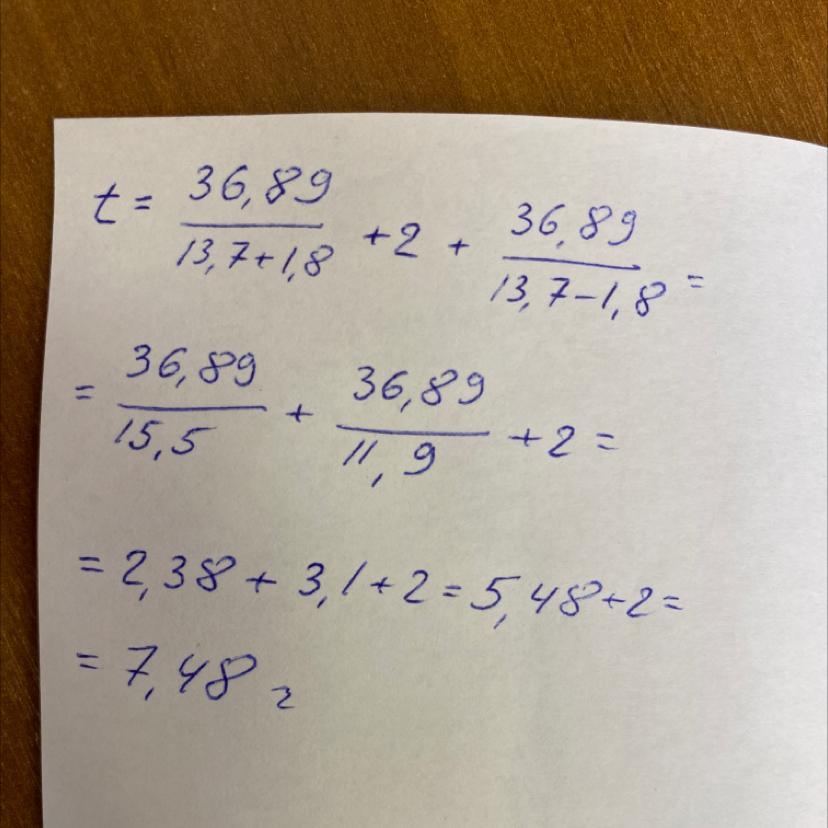 t = 36,89 / 13,7+1,8 + 2 + 36,89 / 13,7-1,8 =
= 36,89 / 15,5 + 36,89 / 11,9 + 2 =
= 2,38 + 3,1 + 2 = 5,48 + 2 =
= 7,48 ч